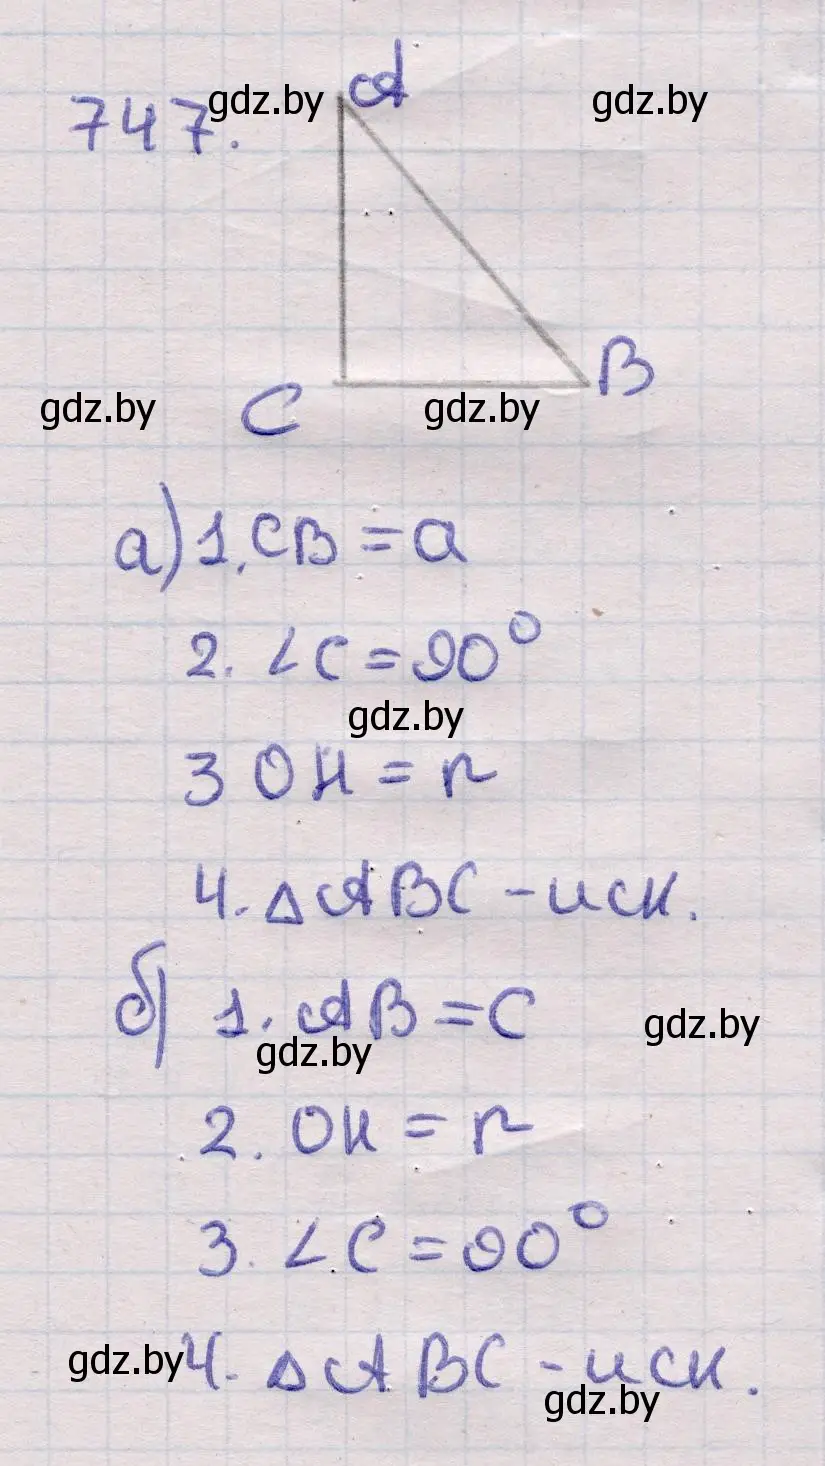 747. gdz.by A gdz.by
gdz.by C gdz.by B
а) 1. CB = a
2. ∠C = 90°
gdz.by
3 OH = r
4. △ABC - иск.
б) 1. AB = C
gdz.by gdz.by
2. OH = r
3. ∠C = 90°
gdz.by 4. △ABC - иск.
gdz.by